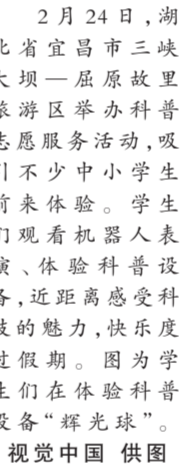 2月24日，湖
北省宜昌市三峡
大坝—屈原故里
旅游区举办科普
志愿服务活动，吸
引不少中小学生
前来体验。学生
们观看机器人表
演、体验科普设
备，近距离感受科
技的魅力，快乐度
过假期。图为学
生们在体验科普
设备“辉光球”。
视觉中国 供图